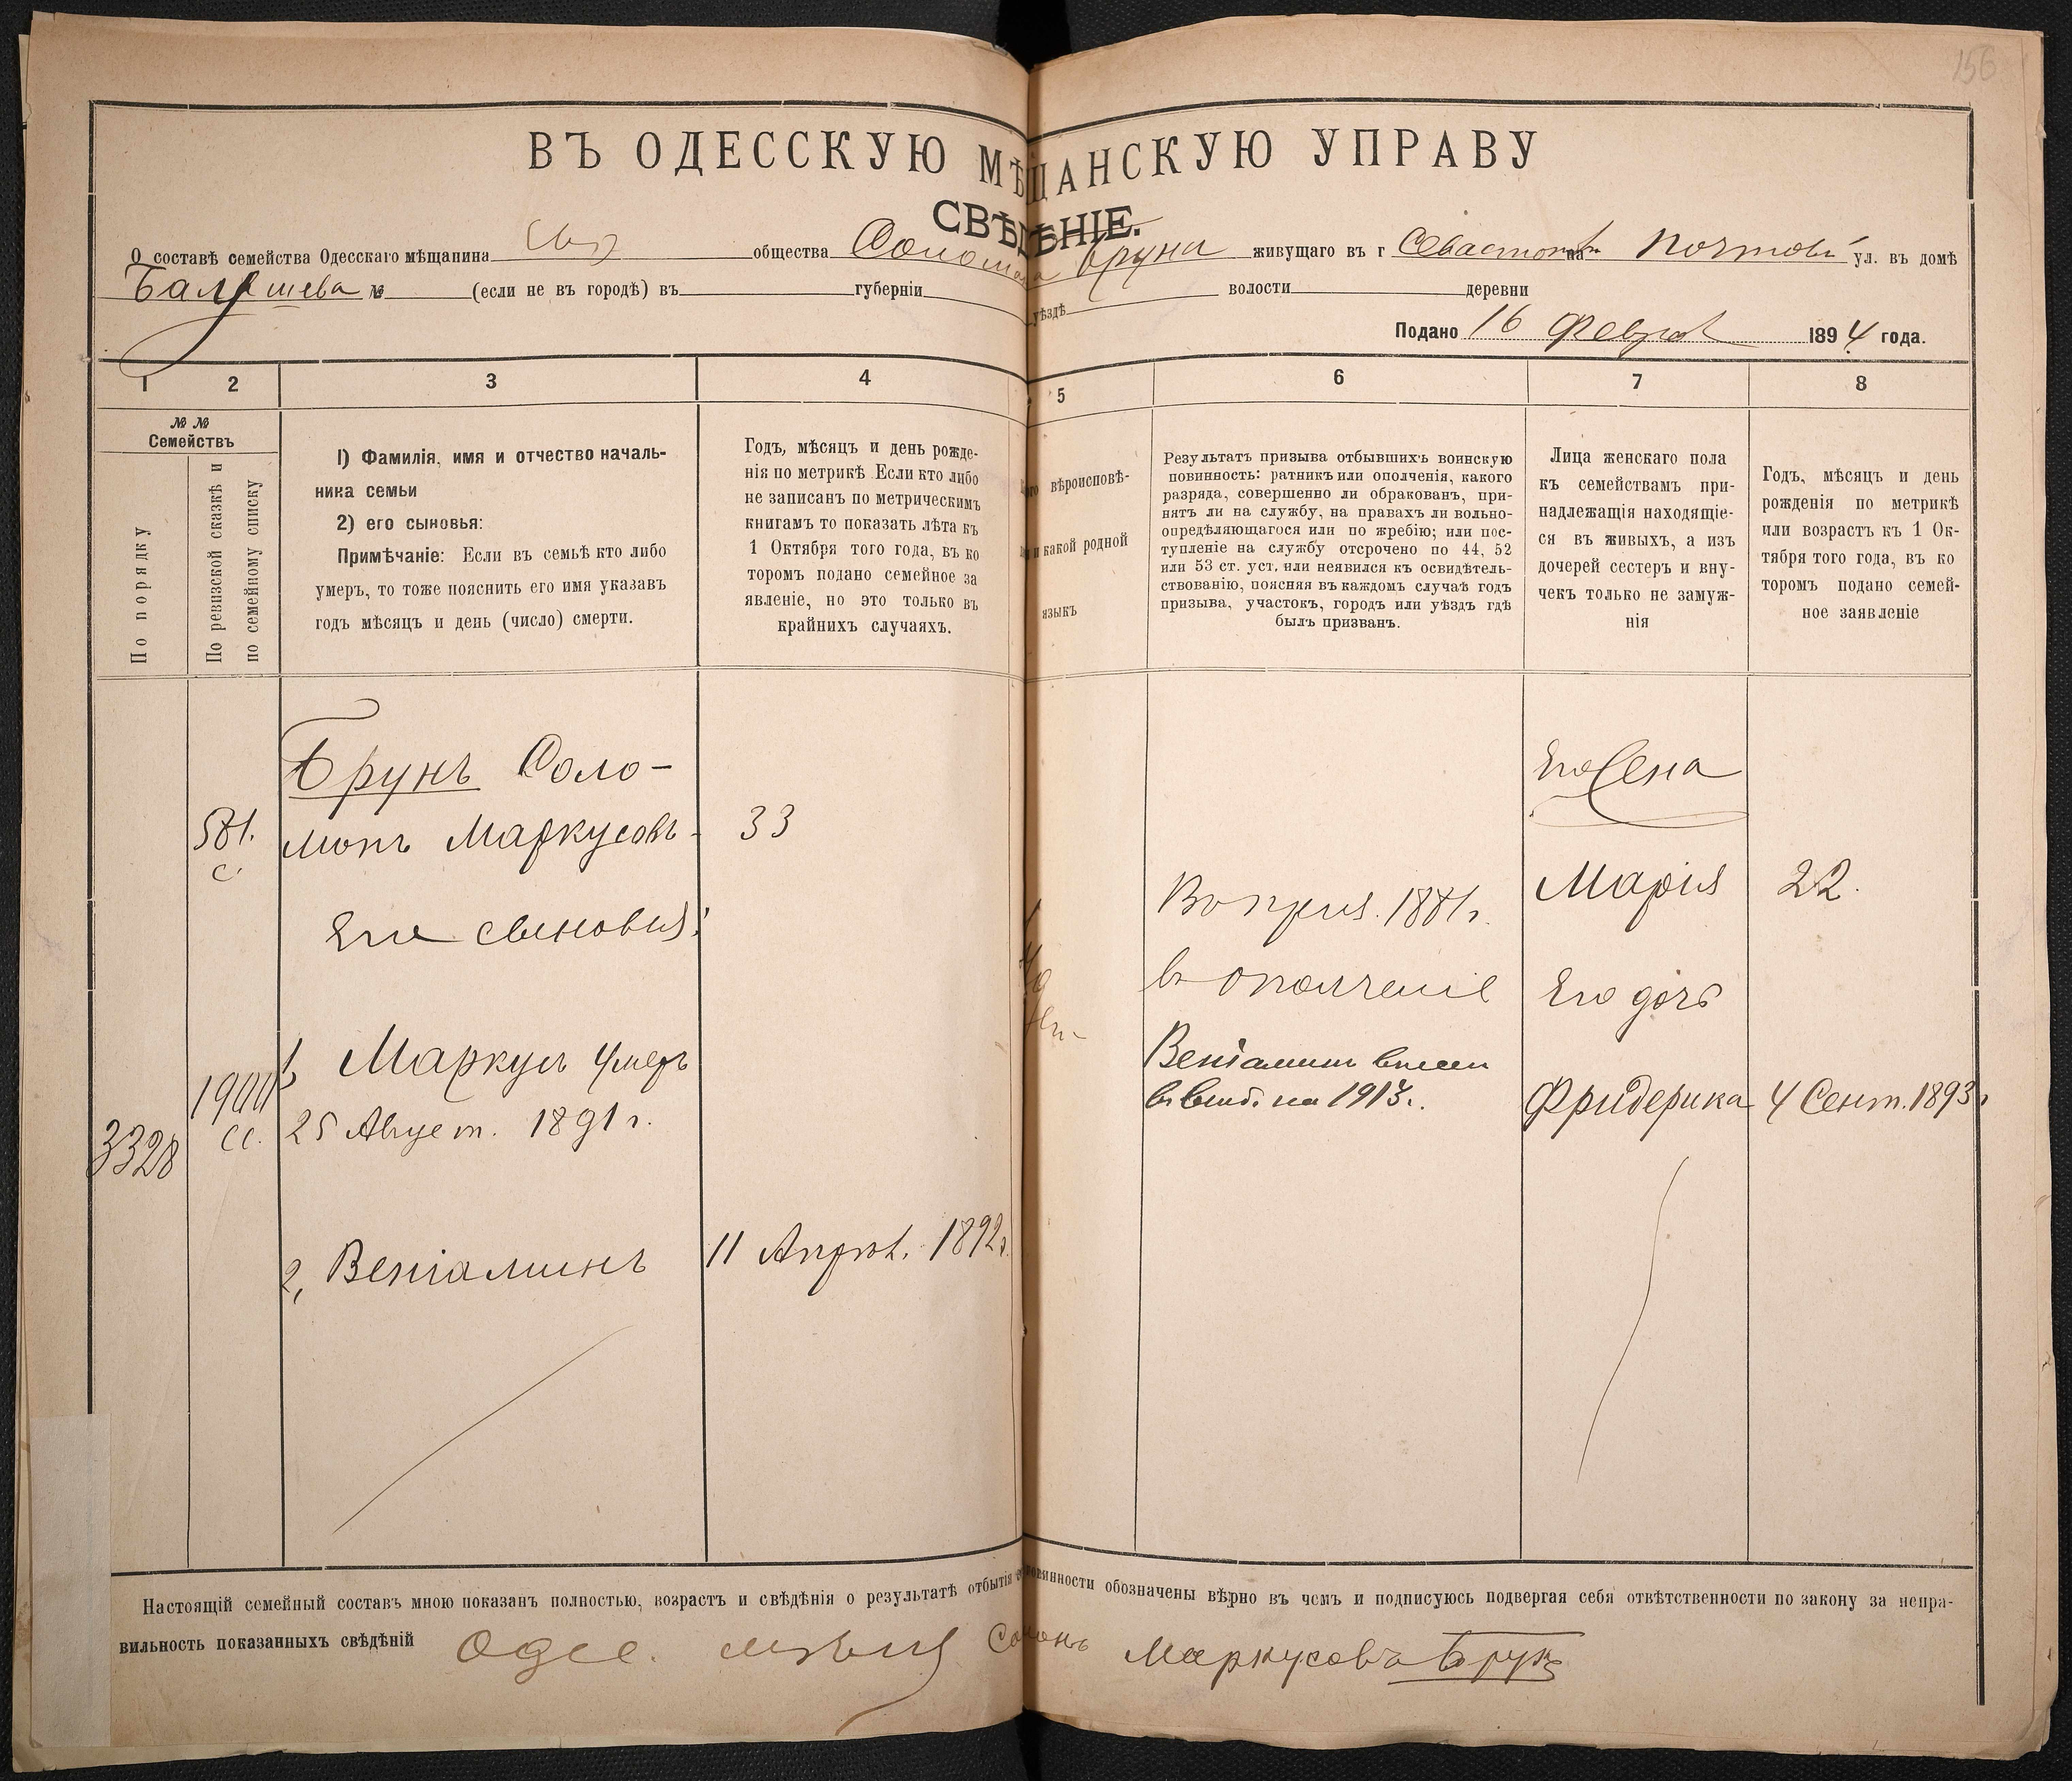 156
ВЪ ОДЕССКУЮ МѢЩАНСКУЮ УПРАВУ
СВѢДѢНІЕ.
О составѣ семейства Одесскаго мѣщанина общества Соломона Бруна живущаго въ г Севастопол на Почтовой ул. въ домѣ
№ (если не въ городѣ) въ губерніи уѣздѣ волости деревни
Подано 16 Феврал 1894 года.
1 2 3 4 5 6 7 8
№ №
Семействъ
По порядку
По ревизской сказкѣ и
по семейному списку
1) Фамилія, имя и отчество началь-
ника семьи
2) его сыновья:
Примѣчаніе: Если въ семьѣ кто либо
умеръ, то тоже пояснить его имя указавъ
годъ мѣсяцъ и день (число) смерти.
Годъ, мѣсяцъ и день рожде-
нія по метрикѣ Если кто либо
не записанъ по метрическимъ
книгамъ то показать лѣта къ
1 Октября того года, въ ко
торомъ подано семейное за
явленіе, но это только въ
крайнихъ случаяхъ.
вѣроисповѣ-
и какой родной
языкъ
Результатъ призыва отбывшихъ воинскую
повинность: ратникъ или ополченія, какого
разряда, совершенно ли обракованъ, при-
нятъ ли на службу, на правахъ ли вольно-
опредѣляющагося или по жребію; или пос-
тупленіе на службу отсрочено по 44, 52
или 53 ст. уст, или неявился къ освидѣтель-
ствованію, поясняя въ каждомъ случаѣ годъ
призыва, участокъ, городъ или уѣздъ гдѣ
былъ призванъ.
Лица женскаго пола
къ семействамъ при-
надлежащія находящіе-
ся въ живыхъ, а изъ
дочерей сестеръ и вну-
чекъ только не замуж-
нія
Годъ, мѣсяцъ и день
рожденія по метрикѣ
или возрастъ къ 1 Ок-
тября того года, въ ко
торомъ подано семей-
ное заявленіе
Брунъ Соло-
581. монъ Маркусовъ- 33
с.
Его сыновья:
1, Маркусъ умеръ
25 Август. 1891 г.
3328
2, Веніаминъ 11 Апрѣл. 1892 г.
Въ приз. 1881 г.
въ ополченіе
Веніаминъ внесен
въ на 1913 г.
Его жена
Марія 22.
Его дочь
Фридерика 4 Сент. 1893 г
Настоящій семейный составъ мною показанъ полностью, возрастъ и свѣдѣнія о результатѣ отбытія повинности обозначены вѣрно въ чемъ и подписуюсь подвергая себя отвѣтственности по закону за непра-
вильность показанныхъ свѣдѣній Одес. мѣщ Соломонъ Маркусовъ Брунъ